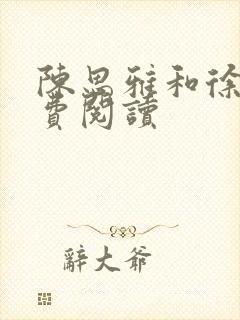 陳思雅和徐
費閱讀
辭大爺